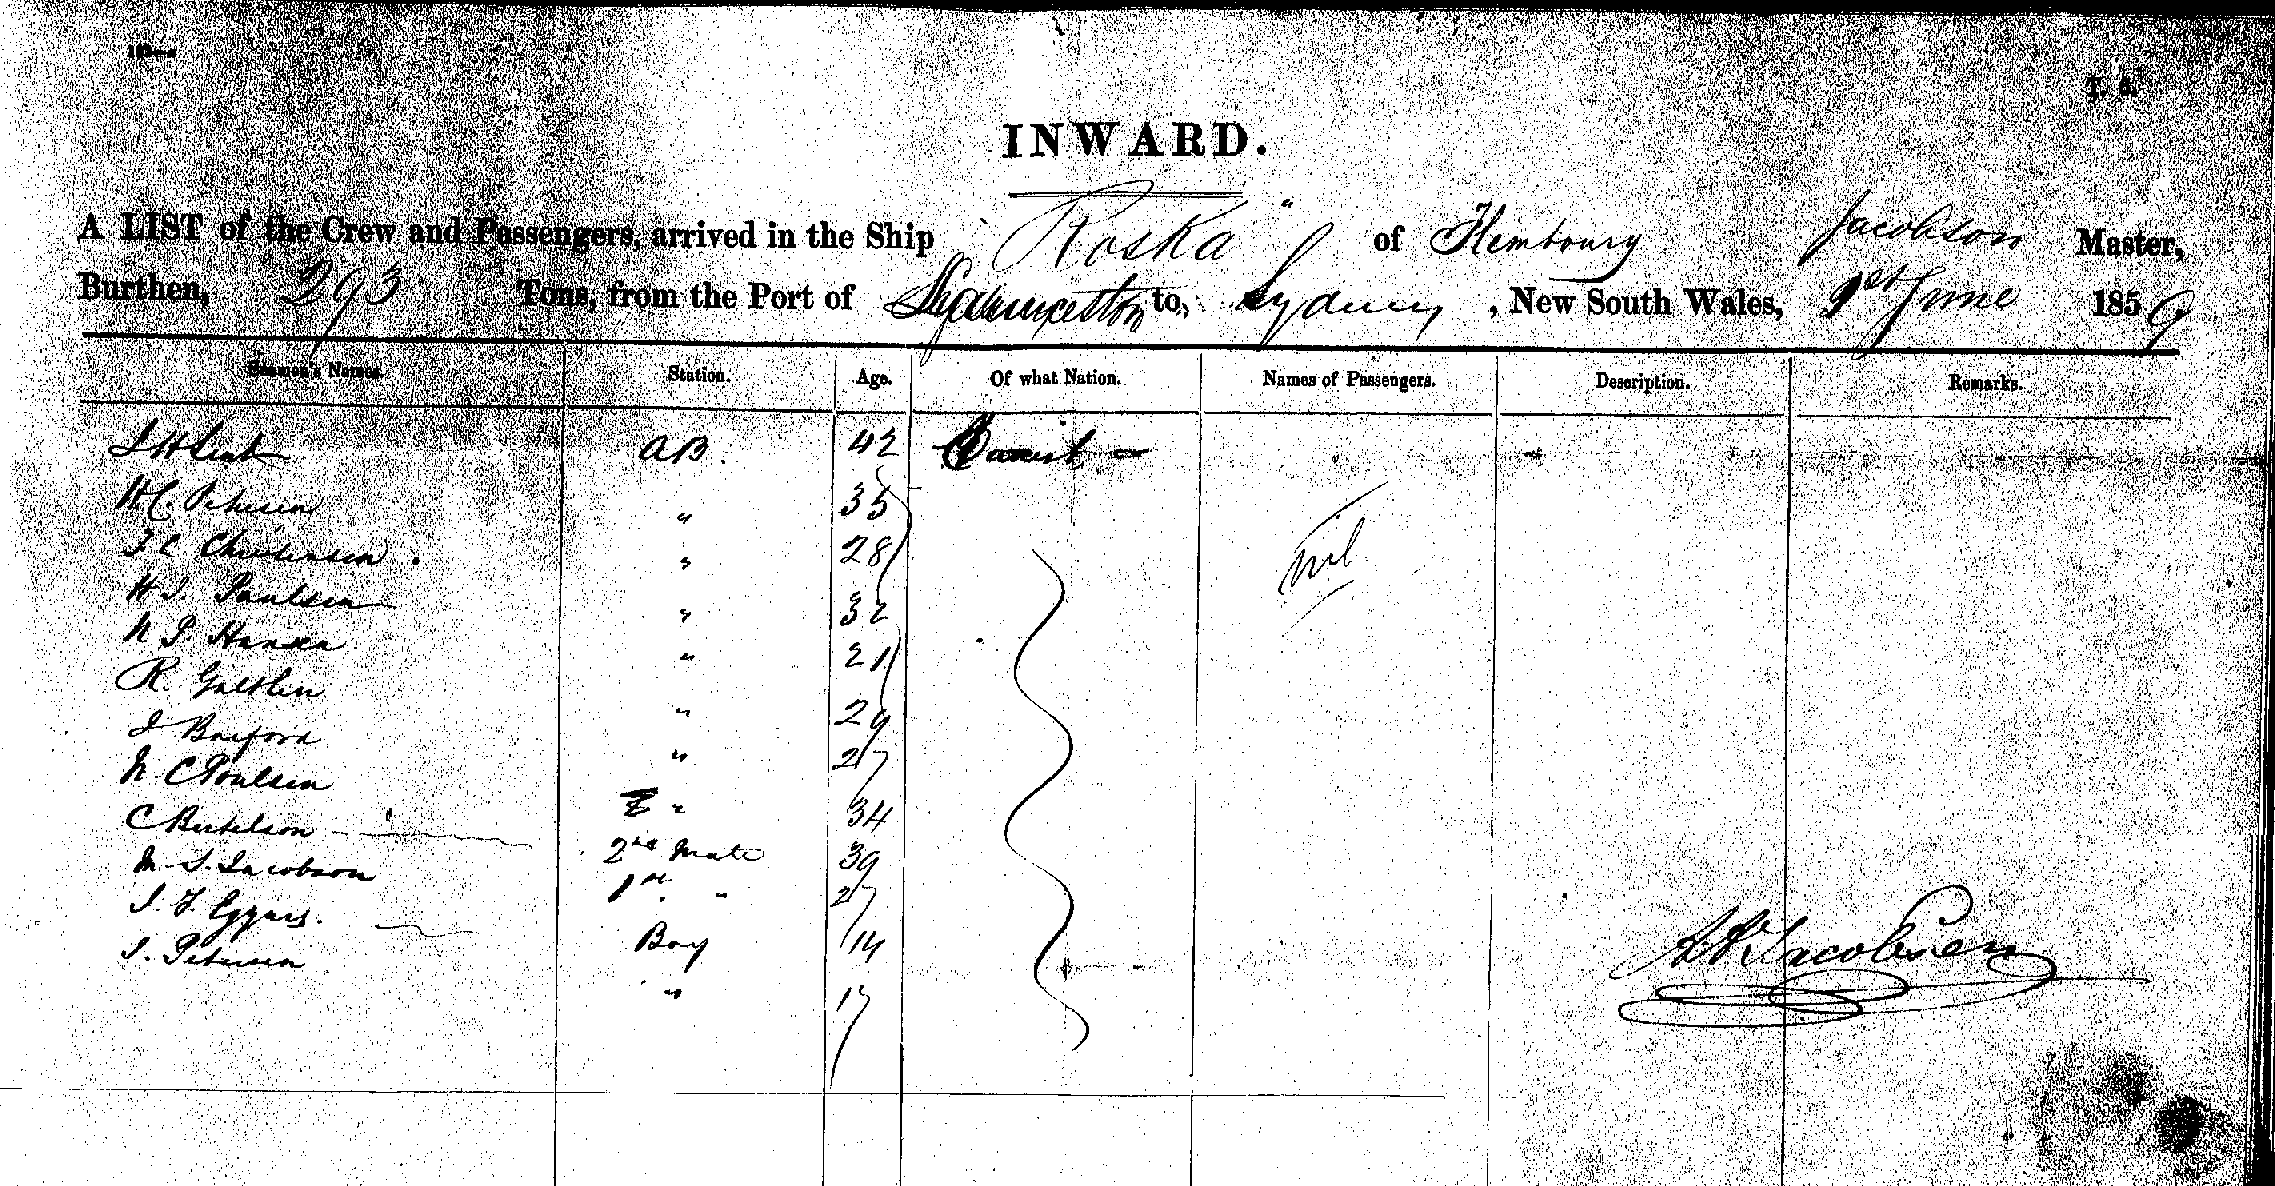 T. 5.
INWARD.
A LIST of the Crew and Passengers, arrived in the Ship "Roska" of Hembourg Jacobson Master,
Burthen, 293 Tons, from the Port of Launceston to Sydney, New South Wales, 1st June 1859
Seamen's Names. Station. Age. Of what Nation. Names of Passengers. Description. Remarks.
AB. 42
H C. Petersen " 35
C Christensen " 28 nil
H J. Paulsen " 32
N P Hansen " 21
R. " 29
J " 27
N C Poulsen " 34
C Bertelson 2nd Mate 39
M. J. Jacobson 1st " 27
J. F. Eggers. Boy 14
J. Petersen " 17
Jacobsen